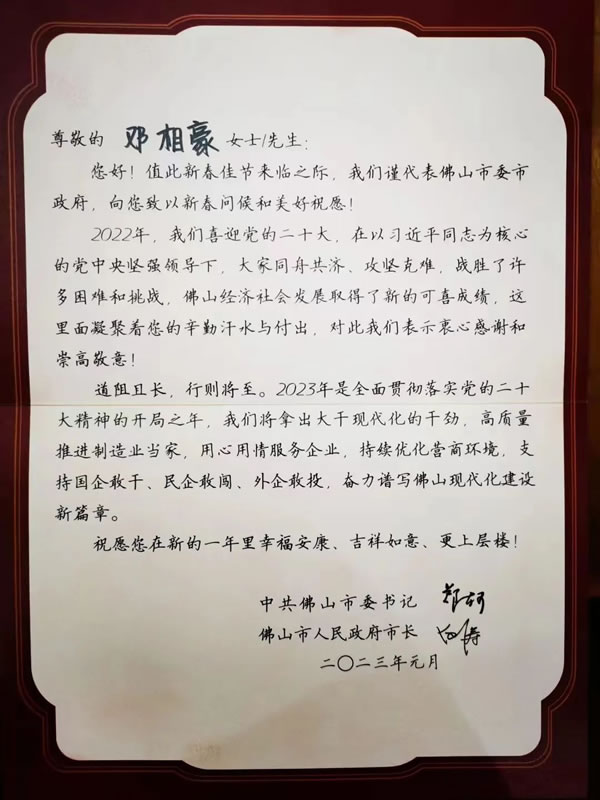 尊敬的 邓相豪 女士/先生：
您好！值此新春佳节来临之际，我们谨代表佛山市委市
政府，向您致以新春问候和美好祝愿！
2022年，我们喜迎党的二十大，在以习近平同志为核心
的党中央坚强领导下，大家同舟共济、攻坚克难，战胜了许
多困难和挑战，佛山经济社会发展取得了新的可喜成绩，这
里面凝聚着您的辛勤汗水与付出，对此我们表示衷心感谢和
崇高敬意！
道阻且长，行则将至。2023年是全面贯彻落实党的二十
大精神的开局之年，我们将拿出大干现代化的干劲，高质量
推进制造业当家，用心用情服务企业，持续优化营商环境，支
持国企敢干、民企敢闯、外企敢投，奋力谱写佛山现代化建设
新篇章。
祝愿您在新的一年里幸福安康、吉祥如意、更上层楼！
中共佛山市委书记
佛山市人民政府市长
二〇二三年元月